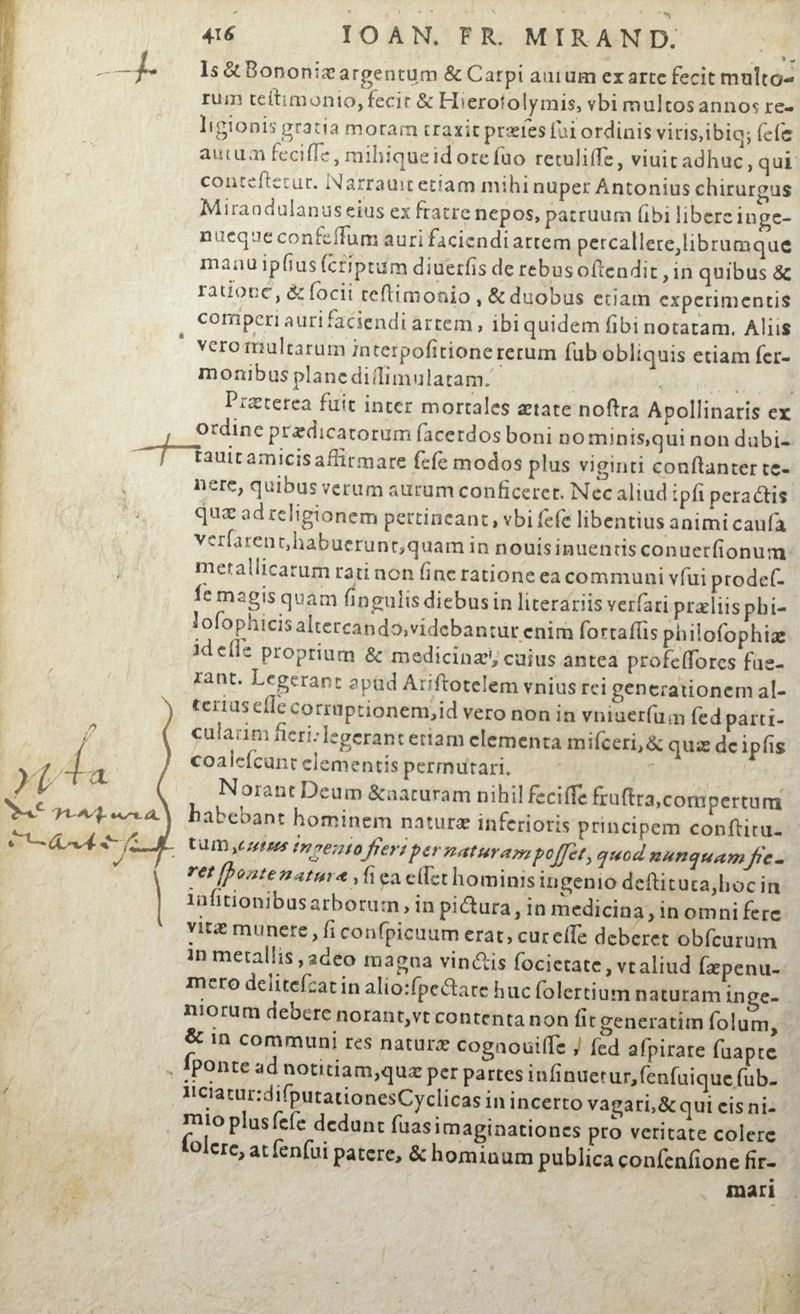 416 IOAN. FR. MIRAND.
Is & Bononiæ argentum & Carpi aurum ex arte fecit multo-
rum teſtimonio, fecit & Hieroſolymis, vbi multos annos re-
ligionis gratia moram traxit præſes ſui ordinis viris, ibiq; ſeſe
aurum feciſſe, mihique id ore ſuo retuliſſe, viuit adhuc, qui
conteſtetur. Narrauit etiam mihi nuper Antonius chirurgus
Mirandulanus eius ex fratre nepos, patruum ſibi libere inge-
nueque confeſſum auri faciendi artem percallere, librumque
manu ipſius ſcriptum diuerſis de rebus oſtendit, in quibus &
ratione, & ſocii teſtimonio, & duobus etiam experimentis
comperi auri faciendi artem, ibi quidem ſibi notatam. Aliis
vero multarum interpoſitione rerum ſub obliquis etiam ſer-
monibus plane diſſimulatam.
Præterea fuit inter mortales ætate noſtra Apollinaris ex
ordine prædicatorum ſacerdos boni nominis, qui non dubi-
tauit amicis affirmare ſeſe modos plus viginti conſtanter te-
nere, quibus verum aurum conficeret. Nec aliud ipſi peractis
quæ ad religionem pertineant, vbi ſeſe libentius animi cauſa
verſarent, habuerunt, quam in nouis inuentis conuerſionum
metallicarum rati non ſine ratione ea communi vſui prodeſ-
ſe magis quam ſingulis diebus in literariis verſari præliis phi-
loſophicis altercando, videbantur enim fortaſſis philoſophiæ
id eſſe proprium & medicinæ, cuius antea profeſſores fue-
rant. Legerant apud Ariſtotelem vnius rei generationem al-
terius eſſe corruptionem, id vero non in vniuerſum ſed parti-
cularim fieri: legerant etiam elementa miſceri, & quæ de ipſis
coaleſcunt elementis permutari.
Norant Deum & naturam nihil feciſſe fruſtra, compertum
habebant hominem naturæ inferioris principem conſtitu-
tum, cuius ingenio fieri per naturam poſſet, quod nunquam fie-
ret ſponte naturæ, ſi ea eſſet hominis ingenio deſtituta, hoc in
inſitionibus arborum, in pictura, in medicina, in omni fere
vitæ munere, ſi conſpicuum erat, cur eſſe deberet obſcurum
in metallis, adeo magna vinctis ſocietate, vt aliud ſæpenu-
mero deliteſcat in alio: ſpectare huc ſolertium naturam inge-
niorum debere norant, vt contenta non ſit generatim ſolum,
& in communi res naturæ cognouiſſe, ſed aſpirare ſuapte
ſponte ad notitiam, quæ per partes inſinuetur, ſenſuique ſub-
iiciatur: diſputationes Cyclicas in incerto vagari, & qui eis ni-
mio plus ſeſe dedunt ſuas imaginationes pro veritate colere
ſolere, at ſenſui patere, & hominum publica conſenſione fir-
mari